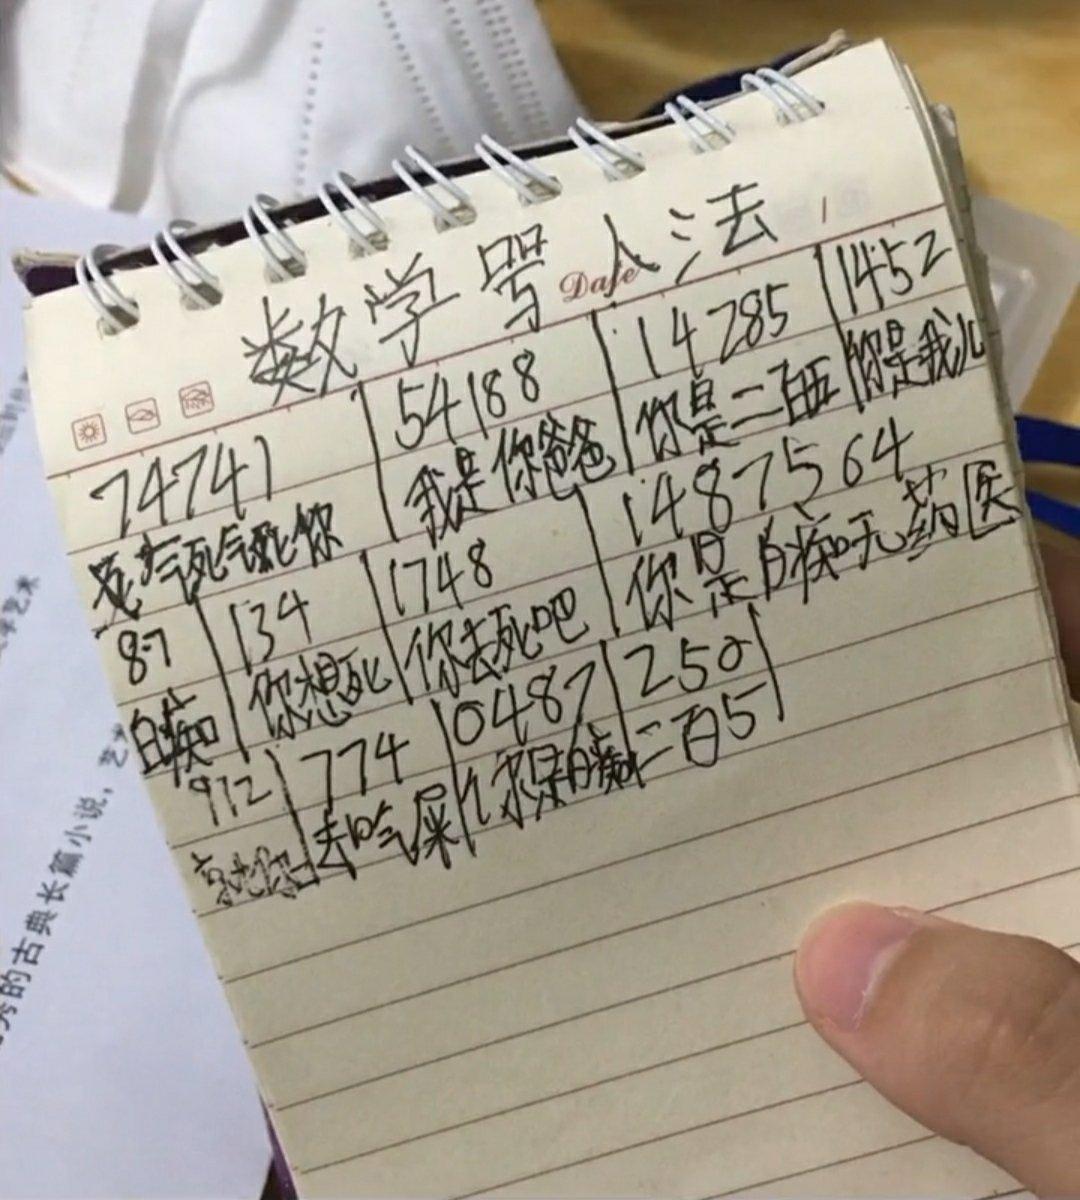 数学骂人法
Date
74741
54188
14785
1452
气死气死你
我是你爸爸
你是二百五
你是我儿
87
134
1748
1487564
白痴
你想死
你去死吧
你是白痴无药医
912
774
0487
250
去吃屎
你是白痴
二百5
的古典长篇小说，艺
学艺术